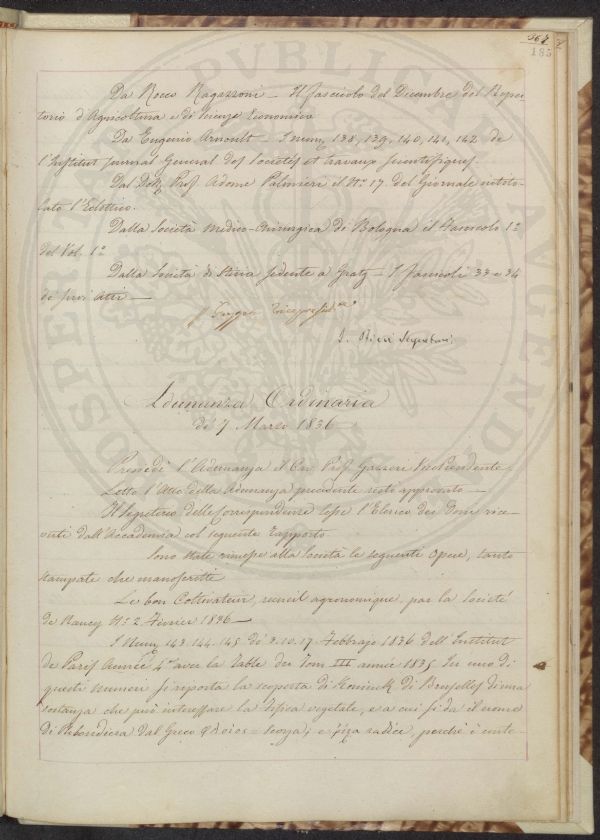 185
Da Rocco Ragazzoni - Il fascicolo del Decembre del Reper-
torio d'Agricoltura e di Scienze Economiche
Da Eugenio Arnoult - I num, 138, 139, 140, 141, 142 de
l'Institut Journal General des Societes et travaux scientifiques.
Dal Dott. Prof. Adone Palmieri il N.o 17 del Giornale intito-
lato l'Eclettico.
Dalla Società Medico-Chirurgica di Bologna il Fascicolo 1.o
del Vol. 1.o
Dalla Società di Stiria sedente a Gratz - I fascicoli 33 e 34
de suoi Atti -
Segretari
Adunanza Ordinaria
di 7 Marzo 1836
Presedè l'Adunanza il Cav. Prof. Gazzeri Vicepresidente
Letto l'Atto della Adunanza precedente restò approvato -
Il Segretario delle Corrispondenze lesse l'Elenco dei Doni rice-
vuti dall'Accademia col seguente rapporto
Sono state rimesse alla Società le seguenti Opere, tanto
stampate che manoscritte
Le bon Cultivateur, recueil agronomique, par la Societé
de Nancy N.o 2 Fevrier 1836 -
I Num 143. 144. 145 di 3. 10. 17 Febbrajo 1836 dell'Institut
de Paris Année 4.e avec la Table des Tom III année 1835 In uno di
questi numeri si riporta la scoperta di Koninck di Bruselles di una
sostanza che può interessare la fisica vegetale, e a cui si dà il nome
di dal Greco φλοιος - scorza, e ρίζα radice, perchè è conte-
PUBLICAE
PROSPERITATI
AUGENDAE